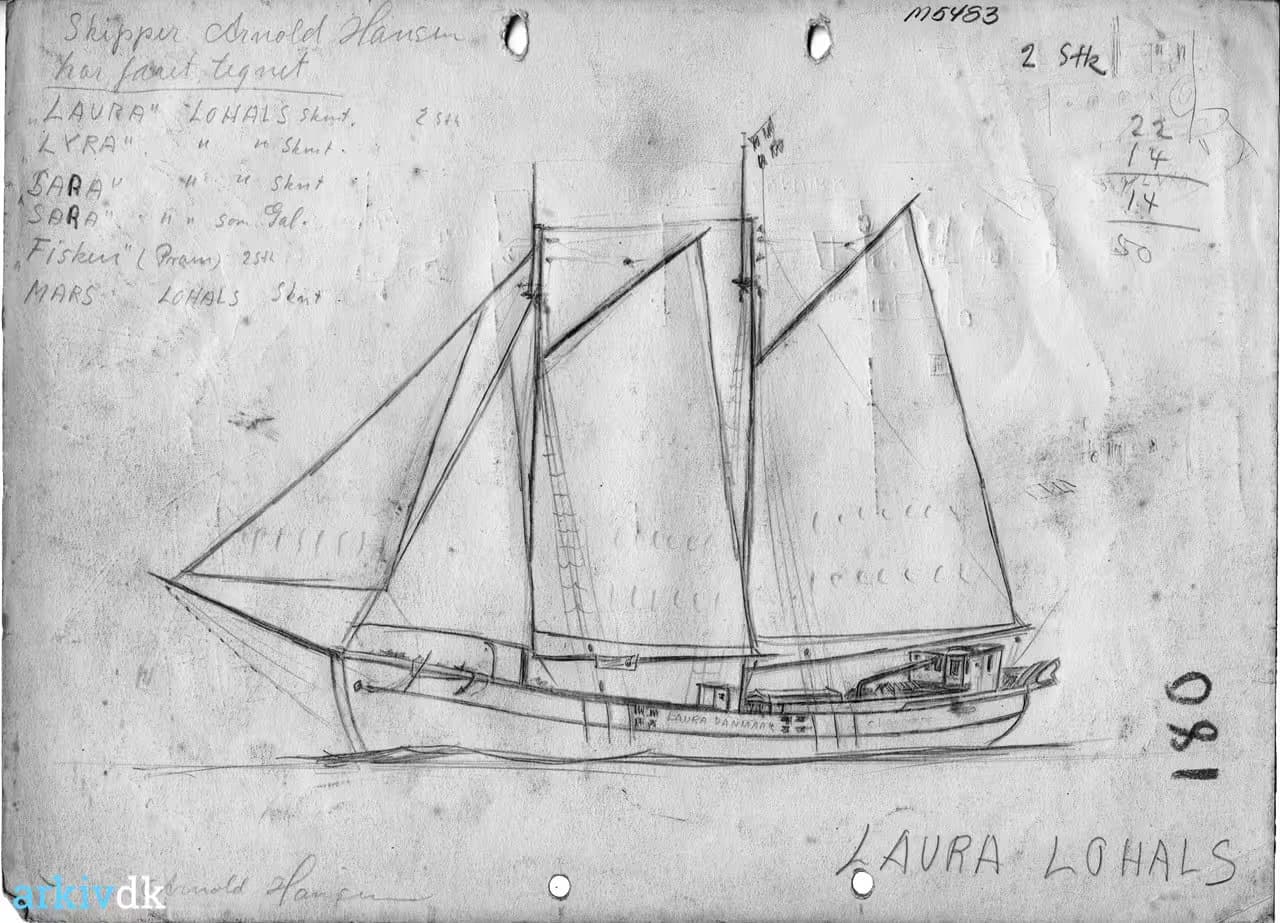 M5483
Skipper Arnold Hansen
har faaet tegnet
2 Stk
"LAURA" LOHALS Sknt. 2 Stk
"LYRA" " " Sknt.
"SARA" " " Sknt
"SARA" " " som Gal.
"Fisken" (Pram) 2 Stk
MARS LOHALS Sknt.
22
14
14
50
LAURA DANMARK
180
LAURA LOHALS
Arnold Hansen
arkivdk